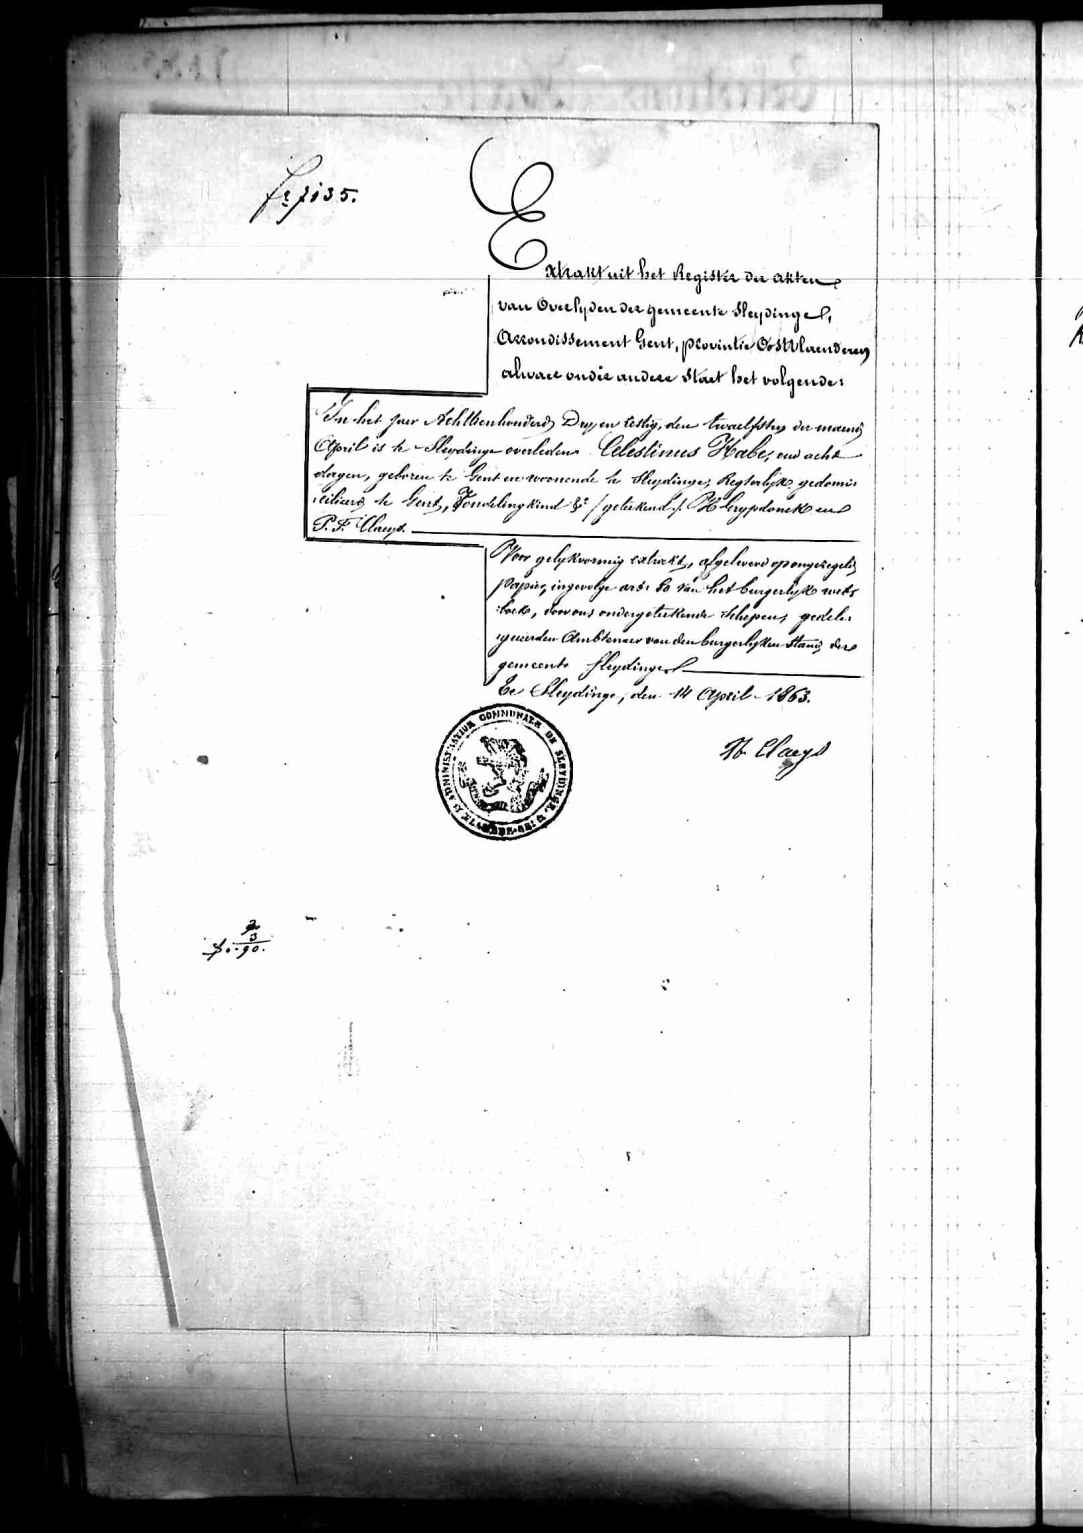 fr 7135.
Extrakt uit het Register der akten
van Overlyden der gemeente Sleydinge,
Arrondissement Gent, provintie Oostvlaenderen
alwaer onder andere Staet het volgende:
In het jaer Achttienhonderd Dry en Zestig, den twaelfsten der maend
April is te Sleydinge overleden Celestinus Habe, oud acht
dagen, geboren te Gent en woonende te Sleydinge, Regterlyk gedomi-
cilieerd te Gent, Vondelingkind &c (geteekend) H. Crypdonck en
P. F. Claeys.
Voor gelykvormig extrakt, afgeleverd op ongezegeld
Papier, ingevolge art: 80 van het burgerlyk wet-
boek, door ons ondergeteekende Schepen, gedele-
gueerden Ambtenaer van den burgerlyken Stand der
gemeente Sleydinge
Te Sleydinge, den 14 April 1863.
Claeys
ADMINISTRATION COMMUNALE DE SLEYDINGE
2
3
90.